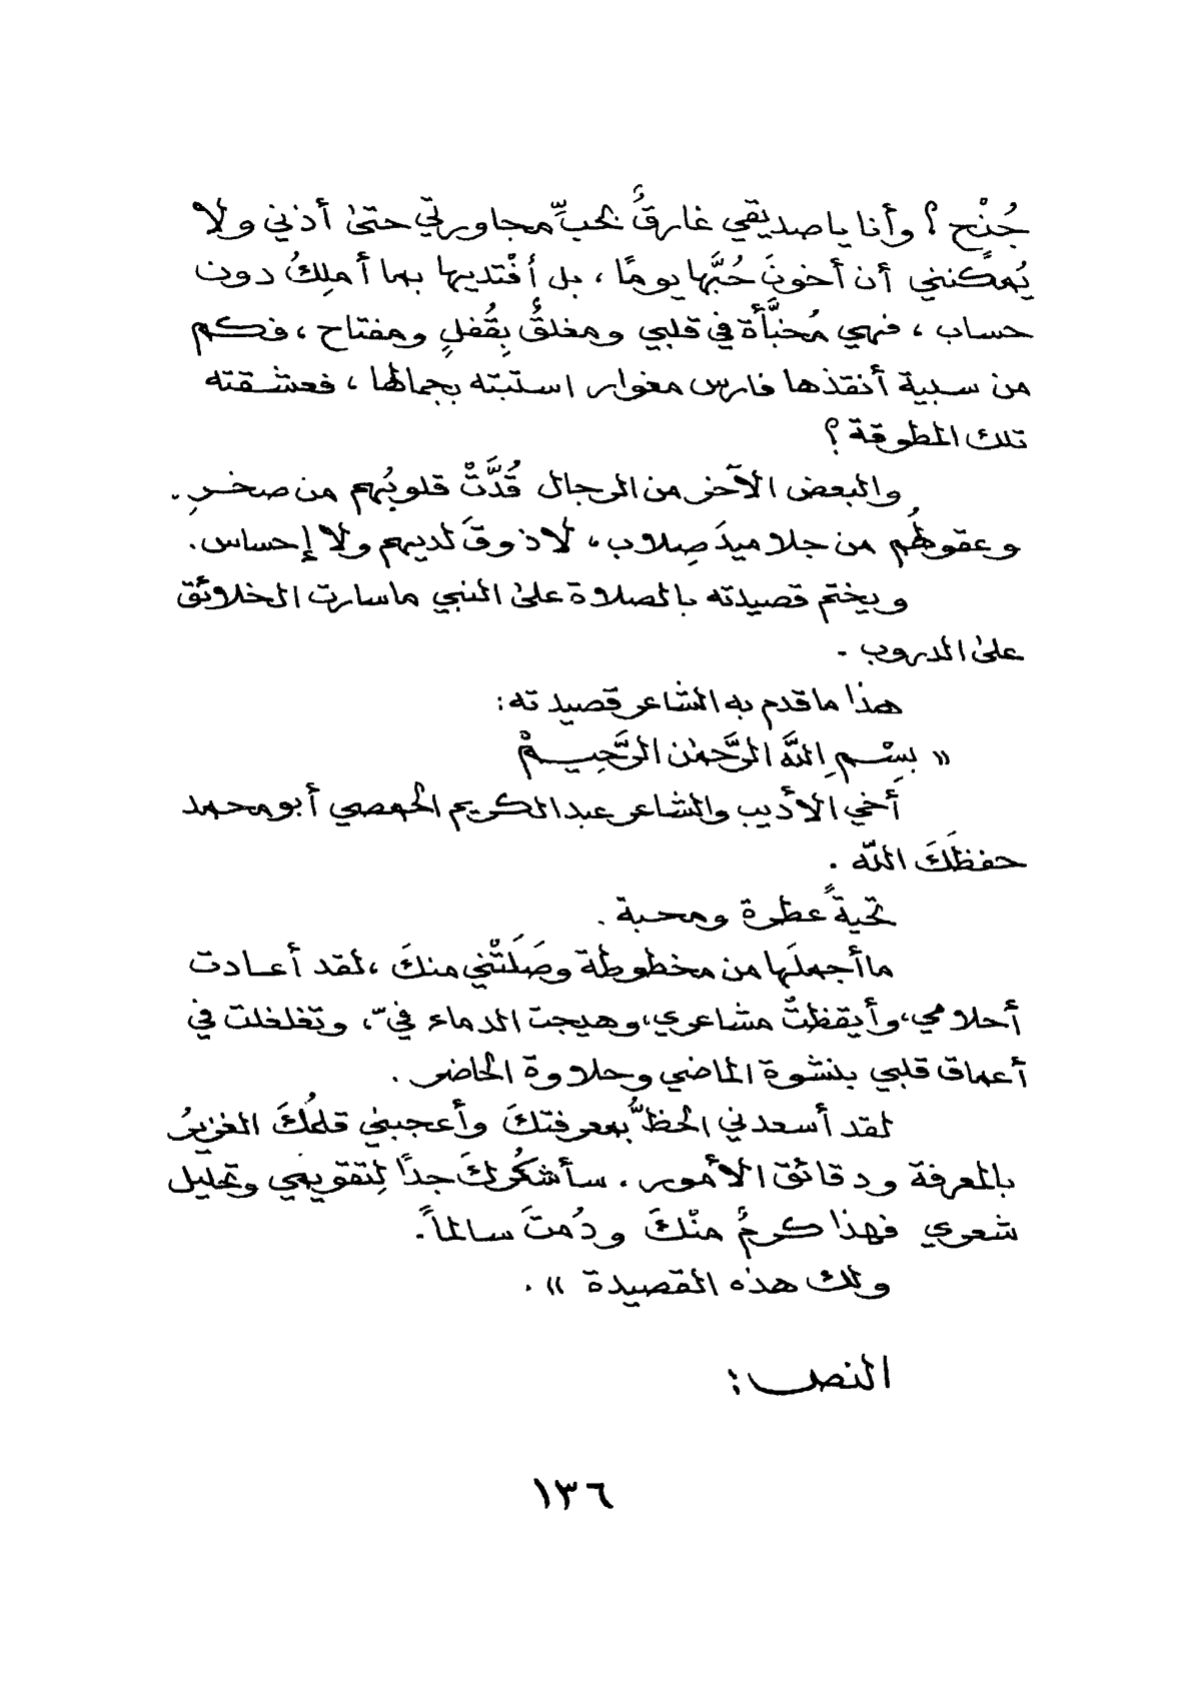 جُنْحٍ ؟ وأنا يا صديقي غارقٌ بحبِّ مجاورتي حتىٰ أذني ولا
يُمكنني أن أخونَ حُبَّها يومًا ، بل أفْتديها بما أملِكُ دون
حساب ، فهي مُخبَّأة في قلبي ومغلقٌ بِقُفلٍ ومفتاح ، فكم
من سبية أنقذها فارس مغوار استبته بجمالها ، فعشقته
تلك المطوقة ؟
والبعض الآخر من الرجال قُدَّتْ قلوبُهم من صخرٍ .
وعقولُهُم من جلاميدَ صِلاب ، لا ذوقَ لديهم ولا إحساس .
ويختم قصيدته بالصلاة علىٰ النبي ما سارت الخلائق
علىٰ الدروب .
هذا ما قدم به الشاعر قصيدته :
« بِسْمِ اللَّهِ الرَّحمٰن الرَّحِيمْ
أَخي الأديب والشاعر عبد الكريم الحمصي أبو محمد
حفظَكَ اللّه .
تحيةً عطرة ومحبة .
ما أجملَها من مخطوطة وصَلَتْني منكَ ، لقد أعادت
أحلامي ، وأيقظتْ مشاعري ، وهيجت الدماء فيّ ، وتغلغلت في
أعماق قلبي بنشوة الماضي وحلاوة الحاضر .
لقد أسعدني الحظُّ بمعرفتكَ وأعجبني قلمُكَ الغزيرُ
بالمعرفة ودقائق الأمور . سأشكُركَ جدًا لِتقويمي وتحليل
شعري فهذا كرمٌ منْكَ ودُمتَ سالماً .
ولك هذه القصيدة » .
النص :
١٣٦